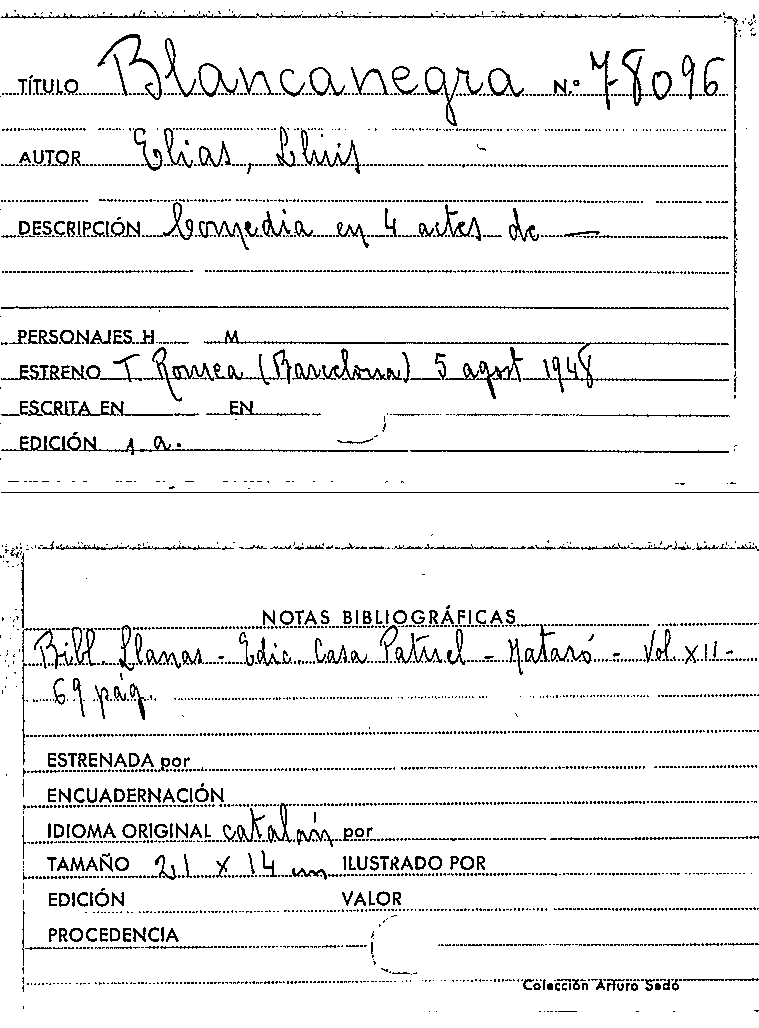 TÍTULO Blancanegra N.º 78096
AUTOR Elias, Lluis
DESCRIPCIÓN Comedia en 4 actes de —
PERSONAJES H M
ESTRENO T Romea (Barcelona) 5 agost 1948
ESCRITA EN EN
EDICIÓN 1 a.
NOTAS BIBLIOGRÁFICAS
Bibl. Llanas - Edic. Casa Patuel - Mataró - Vol XII -
69 pág.
ESTRENADA por
ENCUADERNACIÓN
IDIOMA ORIGINAL catalán por
TAMAÑO 21 x 14 cm ILUSTRADO POR
EDICIÓN VALOR
PROCEDENCIA
Colección Arturo Sedó